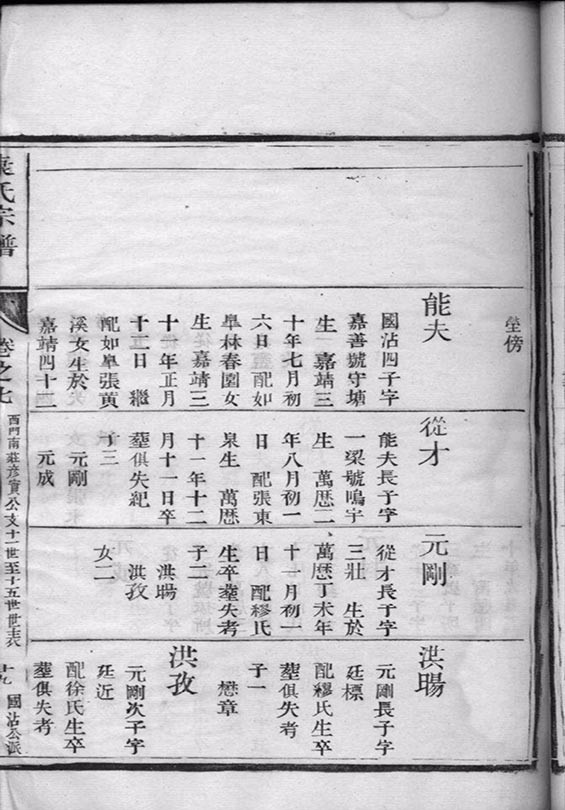 塋傍
能夫
國沾四子字
嘉善號守塘
生 嘉靖三
十年七月初
六日 配如
皐林春園女
生從嘉靖三
十從年正月
十 日 繼
配如皐張黃
溪女生於
嘉靖四十三
從才
能夫長子字
一梁號鳴宇
生 萬曆二
年八月初一
日 配張東
泉生 萬曆
十一年十二
月十一日卒
塟俱失紀
子三
元剛
元成
元剛
從才長子字
三壯 生於
萬曆丁未年
十月初一
日 配繆氏
生卒塟失考
子二
洪暘
洪孜
女二
洪暘
元剛長子字
廷標
配繆氏生卒
塟俱失考
子一
懋章
洪孜
元剛次子字
廷近
配徐氏生卒
塟俱失考
氏宗譜
卷之七
西門南莊彥實公支十二世至十五世世表
十九
國沾公派